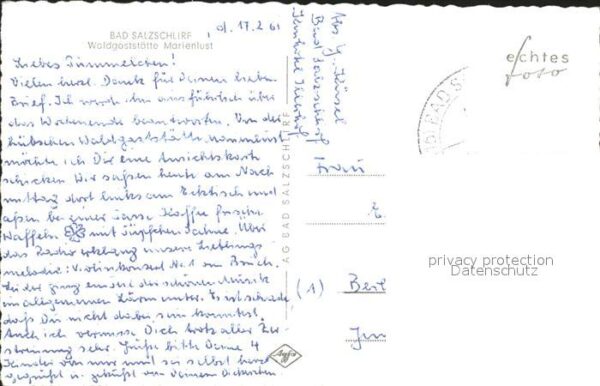 BAD SALZSCHLIRF
Waldgaststätte Marienlust
d. 17.2.61
Liebes Timmeichen!
Vielen herzl. Dank für Deinen lieben
Brief. Ich werde ihn ausführlich über
das Wochenende beantworten. Von der
hübschen Waldgaststätte
möchte ich Dir eine Ansichtskarte
schicken. Wir saßen heute am Nach
mittag dort links am Ecktisch und
aßen bei einer Tasse Kaffee frische
Waffeln mit Tüpfchen Sahne. Über
das Radio erklang unsere Lieblings
melodie: Violinkonzert Nr. 1 von Bruch.
Leider ging eines der schönen Musik
im allgemeinen Lärm unter. Es ist schade
daß Du nicht dabei sein konntest.
Auch ich vermisse Dich trotz aller Zer
streuung sehr. Grüße bitte Deine 4
von mir und sei selbst herzl.
gegrüßt u. geküßt von Deinem
Abs.
Bad Salzschlirf
AG BAD SALZSCHLIRF
Agfa
echtes
foto
BAD S
Frau
(1) Berl
privacy protection
Datenschutz